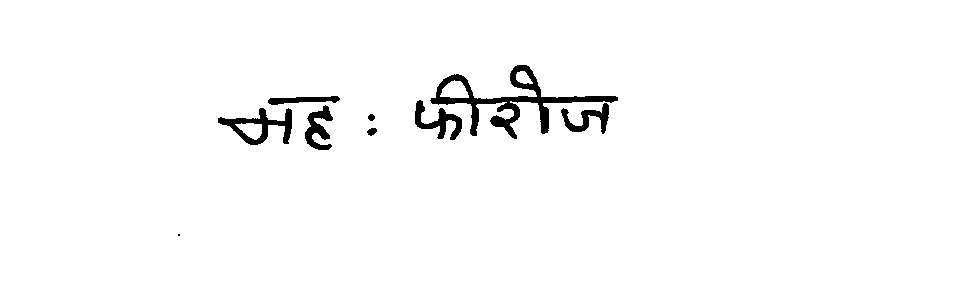 मह : फीरोज